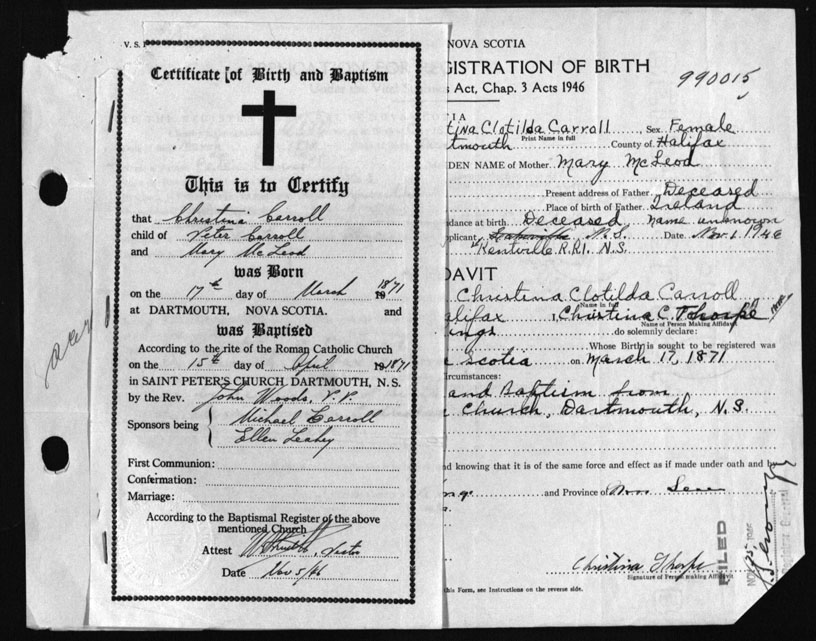 V. S.
Certificate [of Birth and Baptism
This is to Certify
that Christina Carroll
child of Peter Carroll
and Mary McLeod
was Born
on the 17th day of March 1871
at DARTMOUTH, NOVA SCOTIA. and
was Baptised
According to the rite of the Roman Catholic Church
on the 15th day of April 1871
in SAINT PETER'S CHURCH, DARTMOUTH, N. S.
by the Rev. John Woods, P.P.
Sponsors being Michael Carroll
Ellen Leahey
First Communion:
Confermation:
Marriage:
According to the Baptismal Register of the above
mentioned Church
Attest
Date Nov 5/46
over
NOVA SCOTIA
GISTRATION OF BIRTH
990015
s Act, Chap. 3 Acts 1946
IA
tina Clotilda Carroll Sex Female
Print Name in full
tmouth County of Halifax
DEN NAME of Mother Mary McLeod
Present address of Father Deceased
Place of birth of Father Ireland
dance at birth Deceased name unknown
plicant N.S. Date Nov. 1, 1946
Kentville R.R.1. N.S.
DAVIT
Christina Clotilda Carroll
Name in Full
alifax I, Christina C. Thorpe
Name of Person Making Affidavit
ngs do solemnly declare:
Whose Birth is sought to be registered was
Scotia on March 17, 1871
circumstances:
and Baptism from
Church, Dartmouth, N. S.
d knowing that it is of the same force and effect as if made under oath and by
and Province of Nova
Christina Thorpe
Signature of Person Making Affidavit
this Form, see Instructions on the reverse side.
FILED